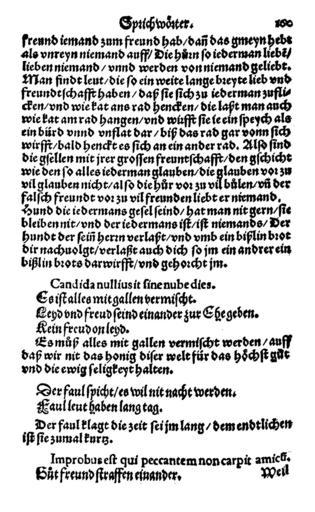 Sprichwörter. 160
freund iemand zum freund hab/ dañ das gmeyn hebt
als vnreyn niemand auff/ Die hůrn so iederman liebt/
lieben niemand/ vnnd werden von niemand geliebt.
Man findt leut/ die so ein weite lange breyte lieb vnd
freundtschafft haben/ daß sie sich zu iederman zuflicken/
vnd wie kat ans rad hencken/ die laßt man auch
wie kat am rad hangen/ vnd wüfft sie ie ein speych als
ein bürd vnnd vnflat dar/ biß das rad gar vonn sich
wirfft/ bald henckt es sich an ein ander rad. Also sind
die gsellen mit jrer grossen freuntschafft/ den gschicht
wie den so alles iederman glauben/ die glauben vor zu
vil glauben nicht/ also die hůr vor zu vil bůlen/ vñ der
falsch freundt vor zu vil freunden liebt er niemand.
Hund die iedermans gesel seind/ hat man nit gern/ sie
bleiben nit/ vnd der iedermans ist/ ist niemands/ Der
hundt der sein̄ herrn verlaßt/ vnd vmb ein bißlin brot
dir nachuolgt/ verlaßt auch dich so jm ein andrer ein
bißlin brots darwirfft/ vnd gehorcht jm.
Candida nullius it sine nube dies.
Es ist alles mit gallen vermischt.
Leyd vnd freud seind einander zur Ehe geben.
Kein freud on leyd.
Es můß alles mit gallen vermischt werden/ auff
daß wir nit das honig diser welt für das höchst gůt
vnd die ewig seligkeyt halten.
Der faul spicht/ es wil nit nacht werden.
Faul leut haben lang tag.
Der faul klagt die zeit sei jm lang/ dem endtlichen
ist sie zumal kurtz.
Improbus est qui peccantem non carpit amicũ.
Gůt freund straffen einander.
Weil